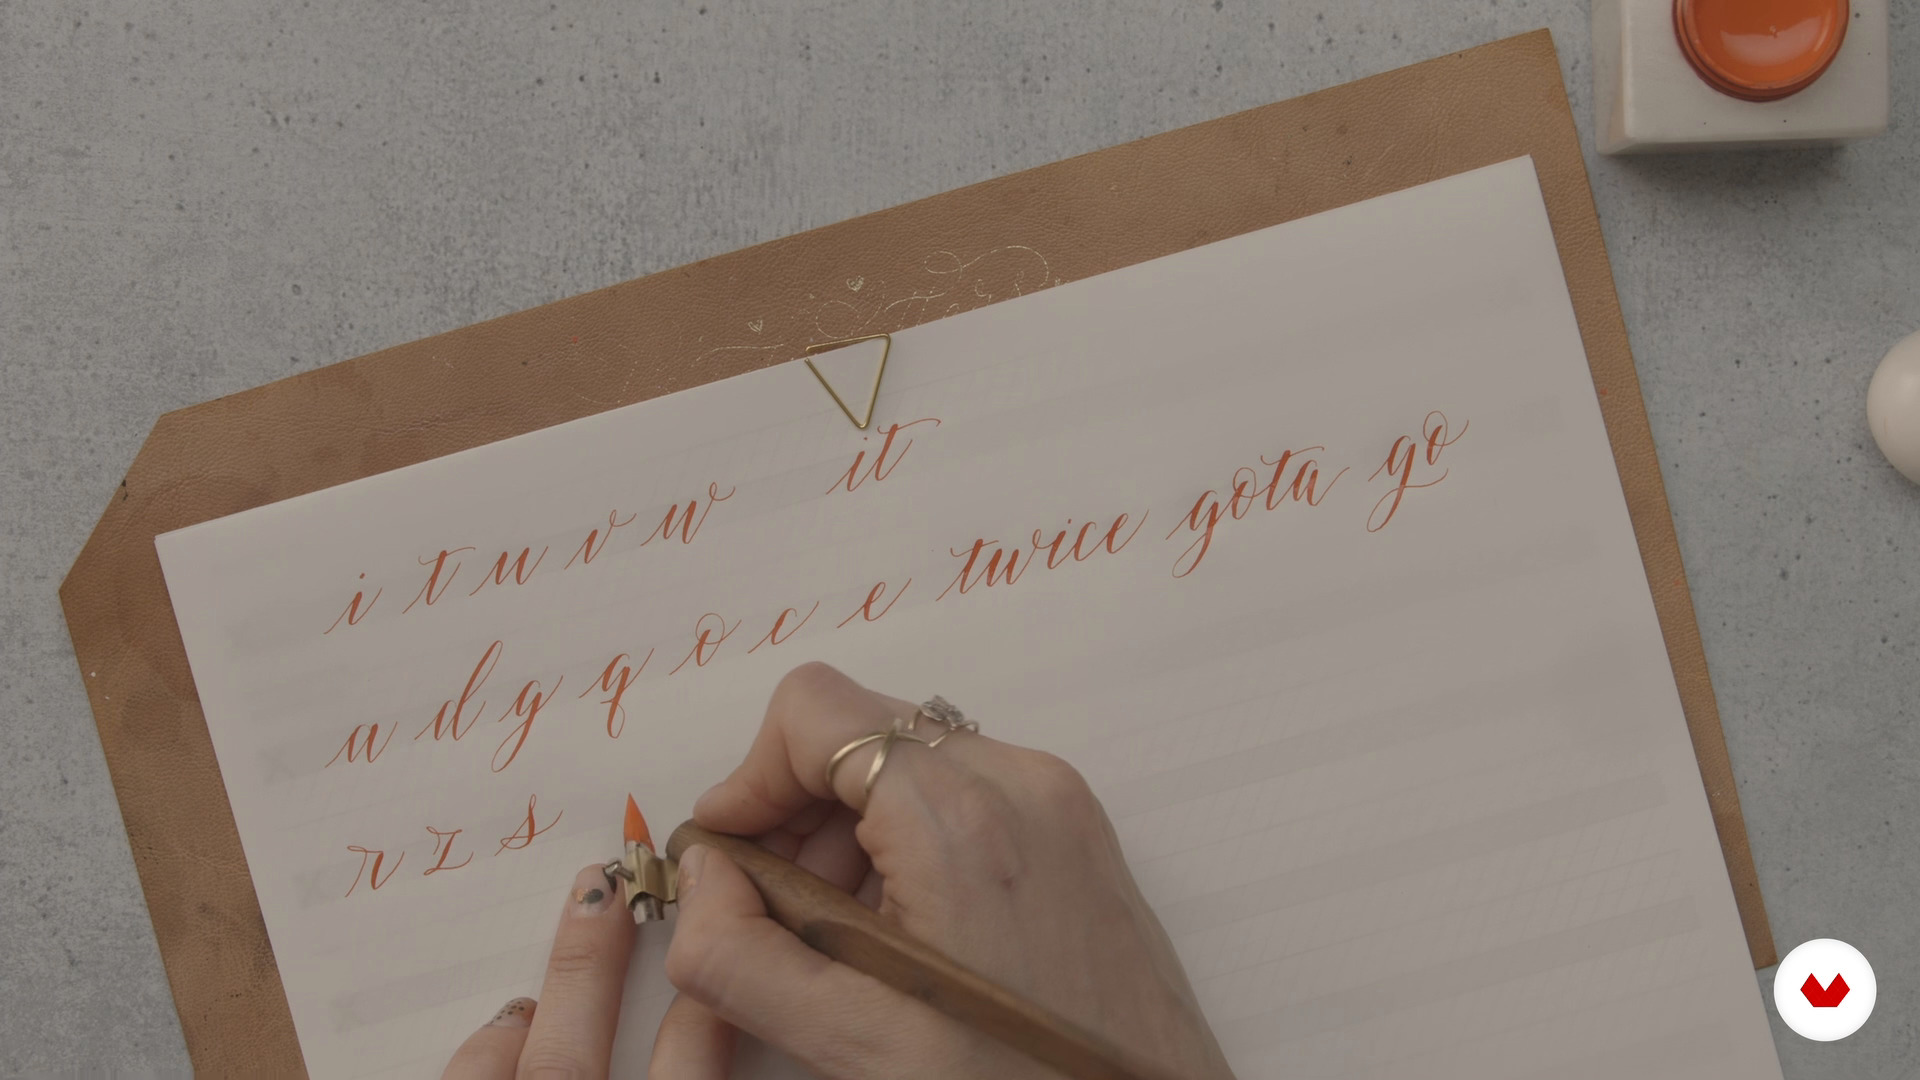 i t u v w it
a d g q o c e twice gota go
r z s